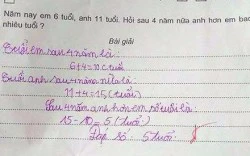 Năm nay em 6 tuổi, anh 11 tuổi. Hỏi sau 4 năm nữa anh hơn em bao
nhiêu tuổi ?
Bài giải
Tuổi em sau 4 năm là:
6+4=10 tuổi
Tuổi anh sau 4 năm nữa là:
11+4=15(tuổi)
Sau 4 năm anh hơn em số tuổi là:
15-10=5(tuổi)
Đáp số 5 tuổi